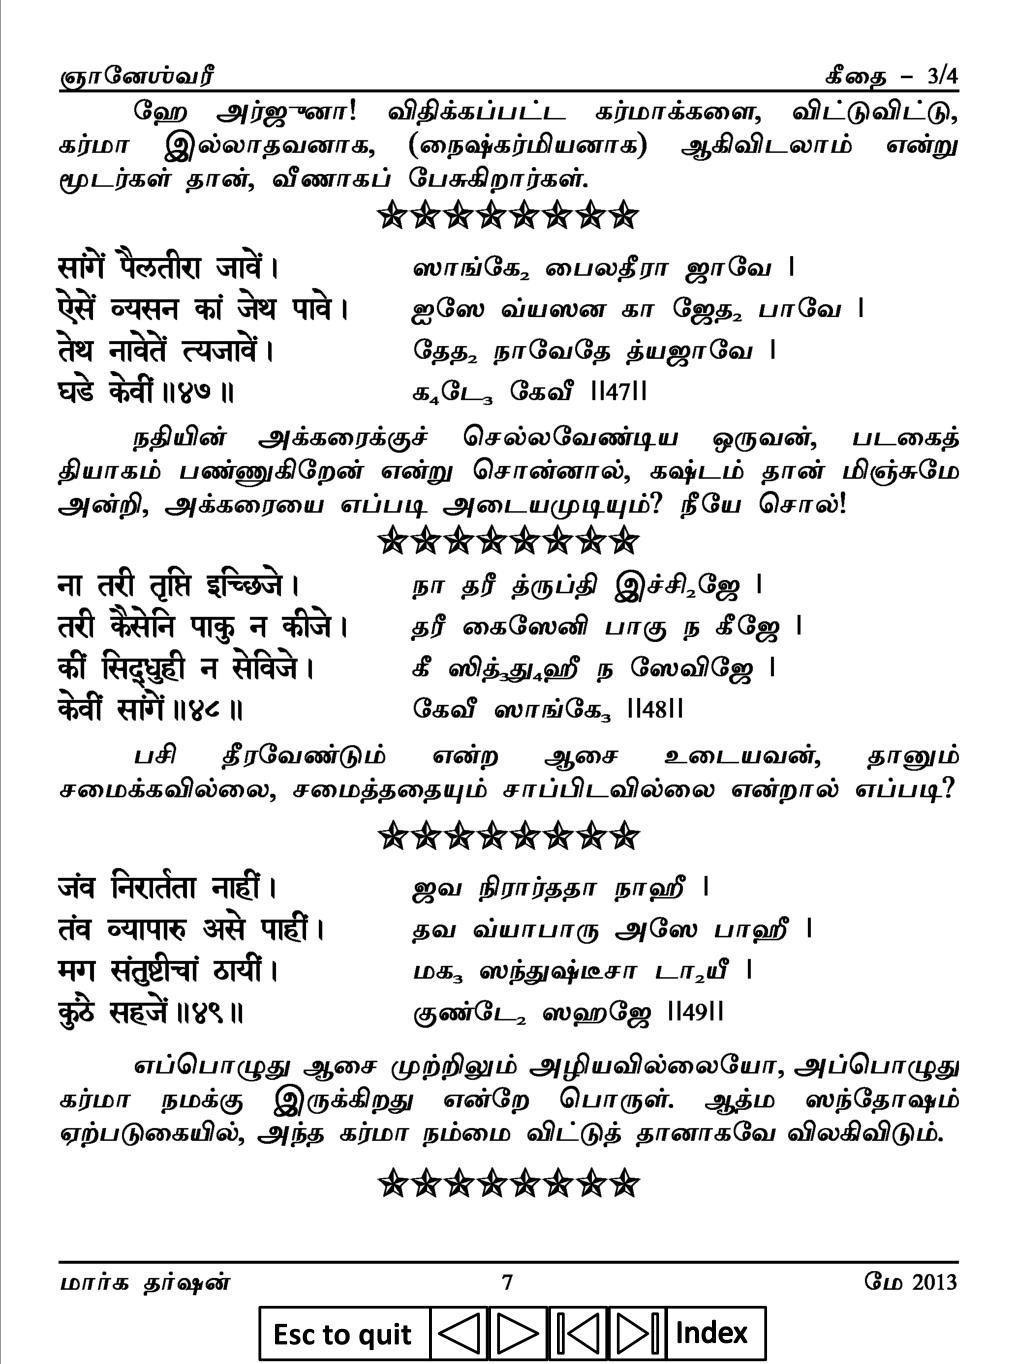 ஞானேஶ்வரீ
கீதை – 3/4
ஹே அர்ஜுனா! விதிக்கப்பட்ட கர்மாக்களை, விட்டுவிட்டு,
கர்மா இல்லாதவனாக, (நைஷ்கர்மியனாக) ஆகிவிடலாம் என்று
மூடர்கள் தான், வீணாகப் பேசுகிறார்கள்.
सांगें पैलतीरा जावें।
ஸாங்கே₂ பைலதீரா ஜாவே |
ऐसें व्यसन कां जेथ पावे।
ஐஸே வ்யஸன கா ஜேத₂ பாவே |
तेथ नावेतें त्यजावें।
தேத₂ நாவேதே த்யஜாவே |
घडे केवीं॥४७॥
க₄டே₃ கேவீ ||47||
நதியின் அக்கரைக்குச் செல்லவேண்டிய ஒருவன், படகைத்
தியாகம் பண்ணுகிறேன் என்று சொன்னால், கஷ்டம் தான் மிஞ்சுமே
அன்றி, அக்கரையை எப்படி அடையமுடியும்? நீயே சொல்!
ना तरी तृप्ति इच्छिजे।
நா தரீ த்ருப்தி இச்சி₂ஜே |
तरी कैसेनि पाकु न कीजे।
தரீ கைஸேனி பாகு ந கீஜே |
कीं सिद्धुही न सेविजे।
கீ ஸித்₃து₄ஹீ ந ஸேவிஜே |
केवीं सांगें॥४८॥
கேவீ ஸாங்கே₃ ||48||
பசி தீரவேண்டும் என்ற ஆசை உடையவன், தானும்
சமைக்கவில்லை, சமைத்ததையும் சாப்பிடவில்லை என்றால் எப்படி?
जंव निरार्तता नाहीं।
ஜவ நிரார்ததா நாஹீ |
तंव व्यापारु असे पाहीं।
தவ வ்யாபாரு அஸே பாஹீ |
मग संतुष्टीचां ठायीं।
மக₃ ஸந்துஷ்டீசா டா₂யீ |
कुंठे सहजें॥४९॥
குண்டே₂ ஸஹஜே ||49||
எப்பொழுது ஆசை முற்றிலும் அழியவில்லையோ, அப்பொழுது
கர்மா நமக்கு இருக்கிறது என்றே பொருள். ஆத்ம ஸந்தோஷம்
ஏற்படுகையில், அந்த கர்மா நம்மை விட்டுத் தானாகவே விலகிவிடும்.
மார்க தர்ஷன்
7
மே 2013
Esc to quit
Index